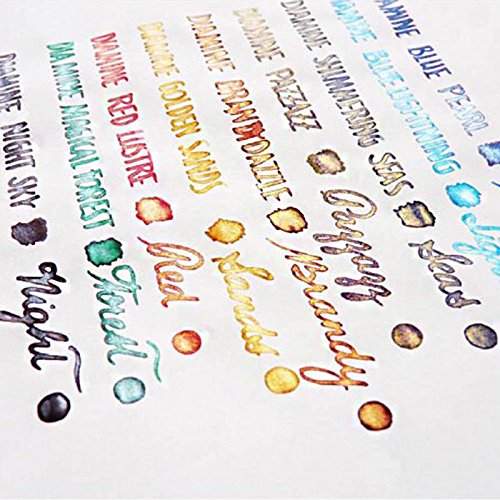 DIAMINE NIGHT SKY
Night
DIAMINE MAGICAL FOREST
Forest
DIAMINE RED LUSTRE
Red
DIAMINE GOLDEN SANDS
Sands
DIAMINE BRANDY DAZZLE
Brandy
DIAMINE PAZZAZZ
DIAMINE SHIMMERING SEAS
Seas
DIAMINE BLUE LIGHTNING
AMINE BLUE PEARL